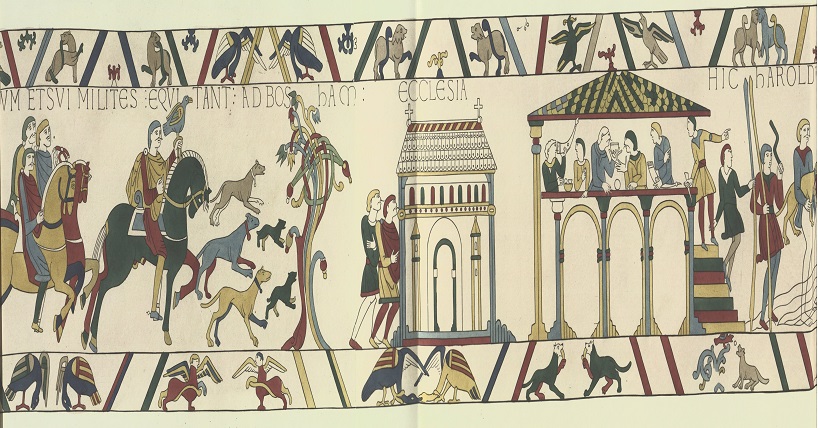 VM ET SVI MILITES : EQVI TANT : AD BOS hAM : ECCLESIA
HIC hAROLD